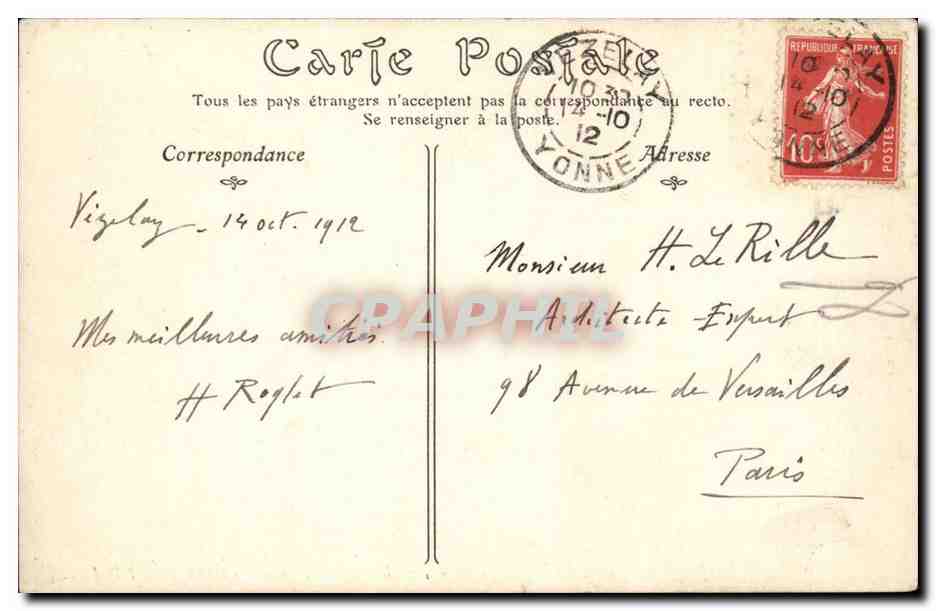 Carte Postale
Tous les pays étrangers n'acceptent pas la correspondance au recto.
Se renseigner à la poste.
Correspondance
Adresse
VÉZELAY
10 30
14 -10
12
YONNE
REPUBLIQUE FRANÇAISE
10c
POSTES
Vézelay - 14 oct. 1912
Mes meilleures amitiés.
H Roglet
Monsieur H. Le Rille
Architecte - Expert
98 Avenue de Versailles
Paris
CPAPHIL